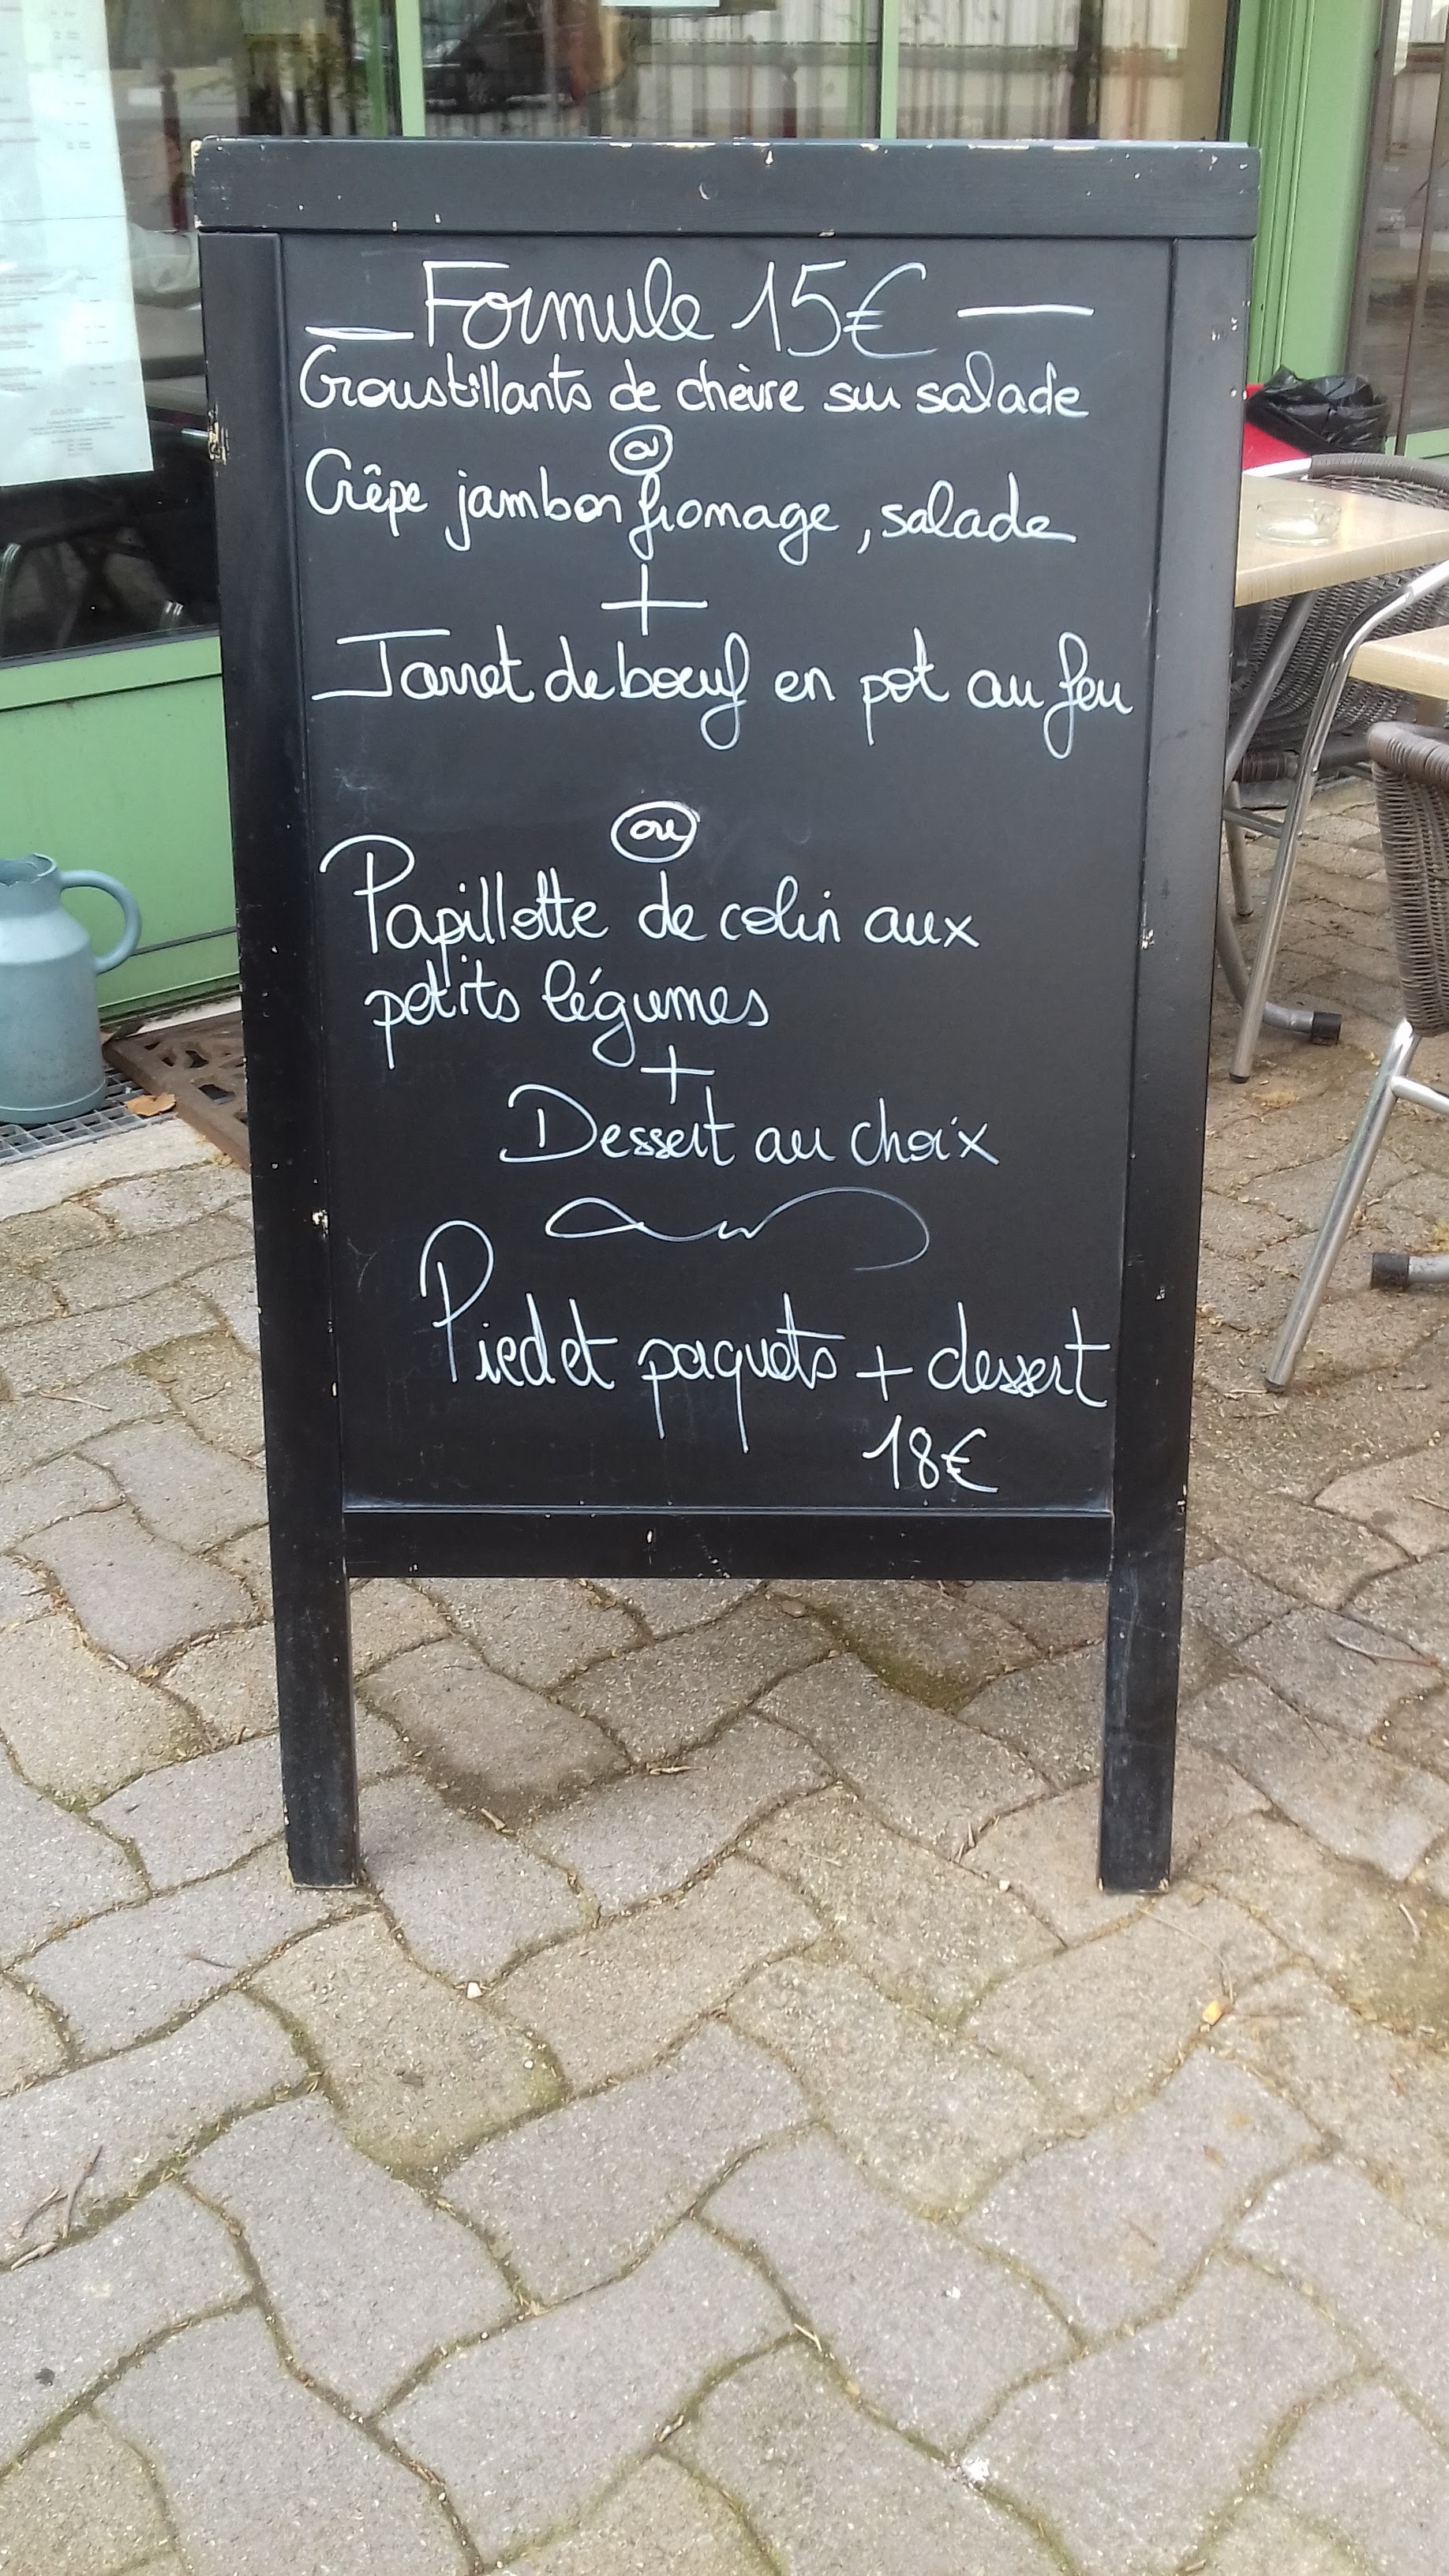 Formule 15€
Croustillants de chèvre sur salade
ou
Crêpe jambon fromage, salade
+
Jarret de boeuf en pot au feu
ou
Papillotte de colin aux
petits légumes
+
Dessert au choix
Pied et paquets + dessert
18€